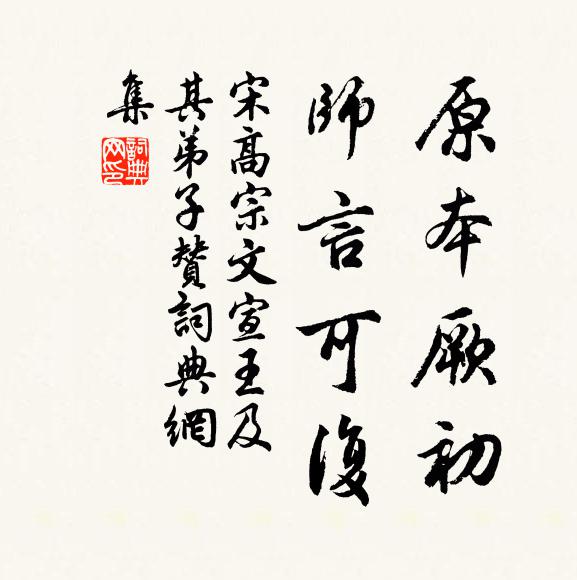 原本厥初
師言可復
宋高宗文宣王及
其弟子贊詞典網
集
詞典網印